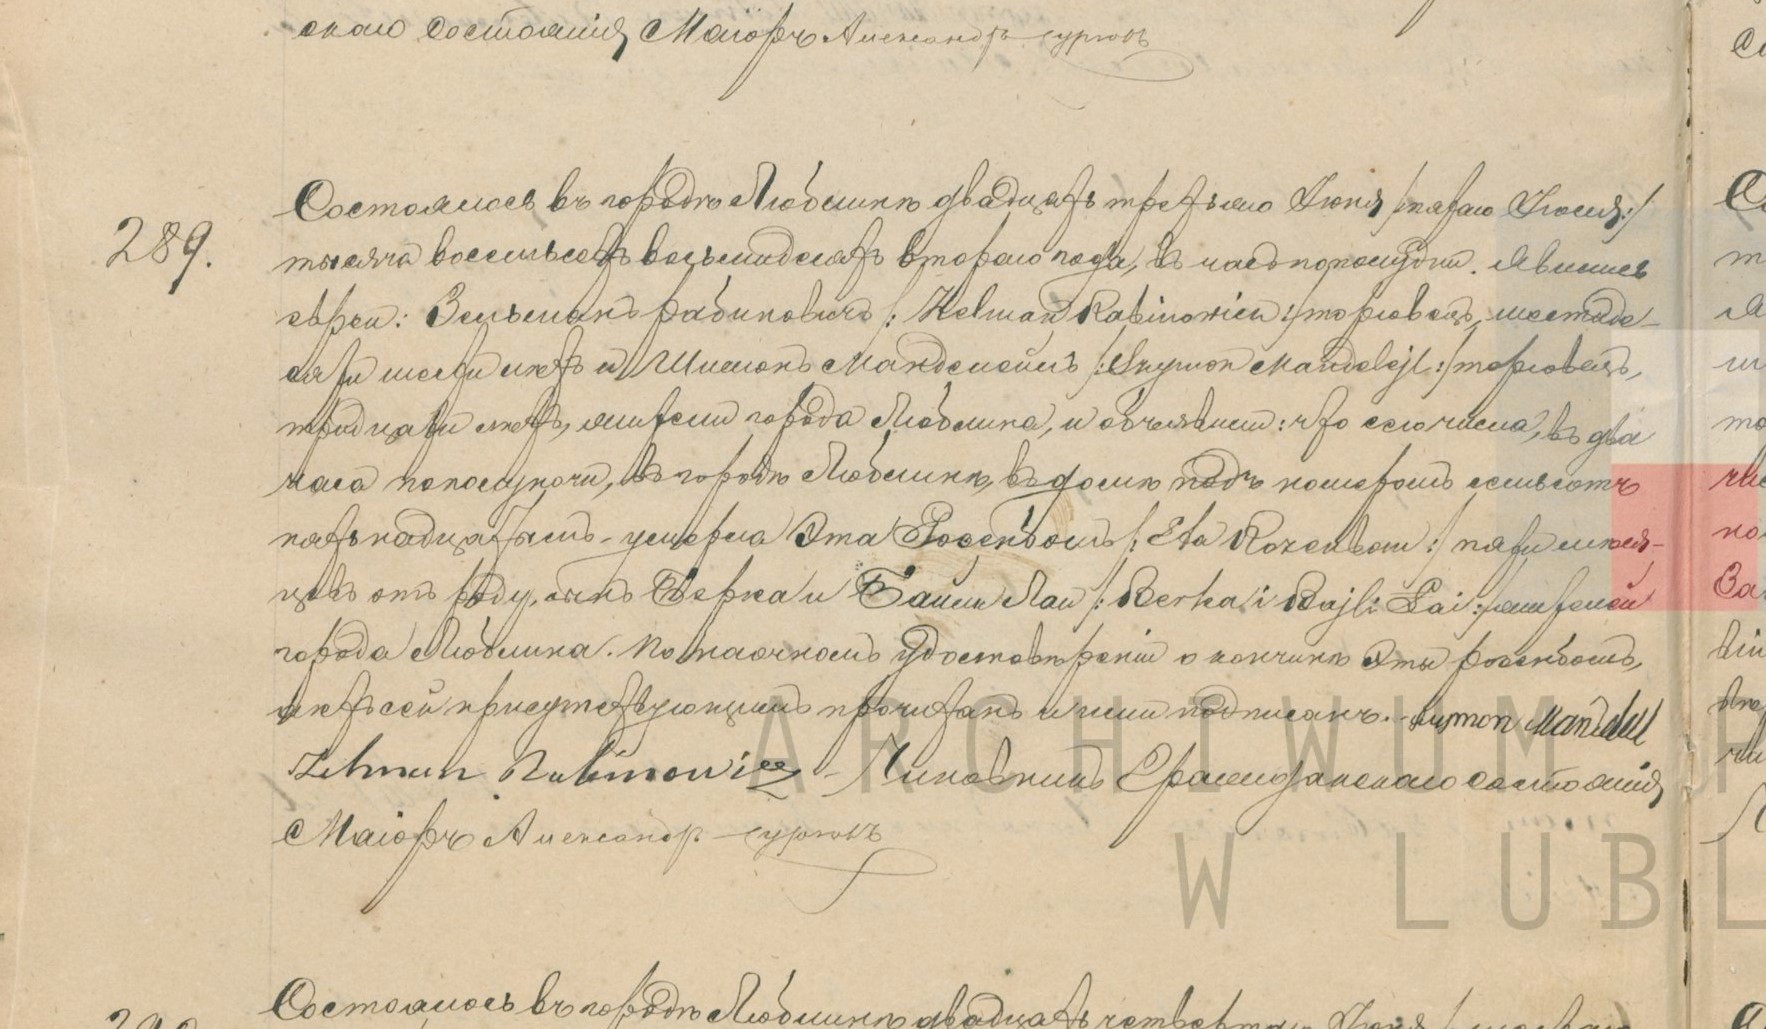 скаго состоянія Маіоръ Александръ Сурговъ
289.
Состоялось въ городѣ Люблинѣ двадцать третьяго Іюня /:пятаго Іюля:/
тысяча восемьсотъ восемьдесятъ втораго года, въ часъ пополудни. Явились
евреи: Зельманъ Рабиновичъ /: Zelman Rabinowicz :/ торговецъ, шестиде-
сяти шести лѣтъ и Шимонъ Мандельейль /: Szymon Mandelejl :/ торговецъ,
тридцати лѣтъ, жители города Люблина, и объявили: что сего числа, въ два
часа пополуночи, въ городѣ Люблинѣ, въ домѣ подъ номеромъ семьсотъ
пятнадцатымъ умерла Эта Розенбомъ /: Eta Rozenbom :/ пяти мѣся-
цевъ отъ роду, дочь Берка и Байли Лаи /: Berka i Bajli Lai :/ жителей
города Люблина. По наочномъ удостовѣреніи о кончинѣ Эты Розенбомъ,
актъ сей присутствующимъ прочитанъ и ими подписанъ. Szymon Mandelejl
Zelman Rabinowicz - Чиновникъ Гражданскаго состоянія
Маіоръ Александръ
Состоялось въ городѣ Люблинѣ двадцать четвертаго Іюня /: шестаго
ARCHIWUM P
W LUBL